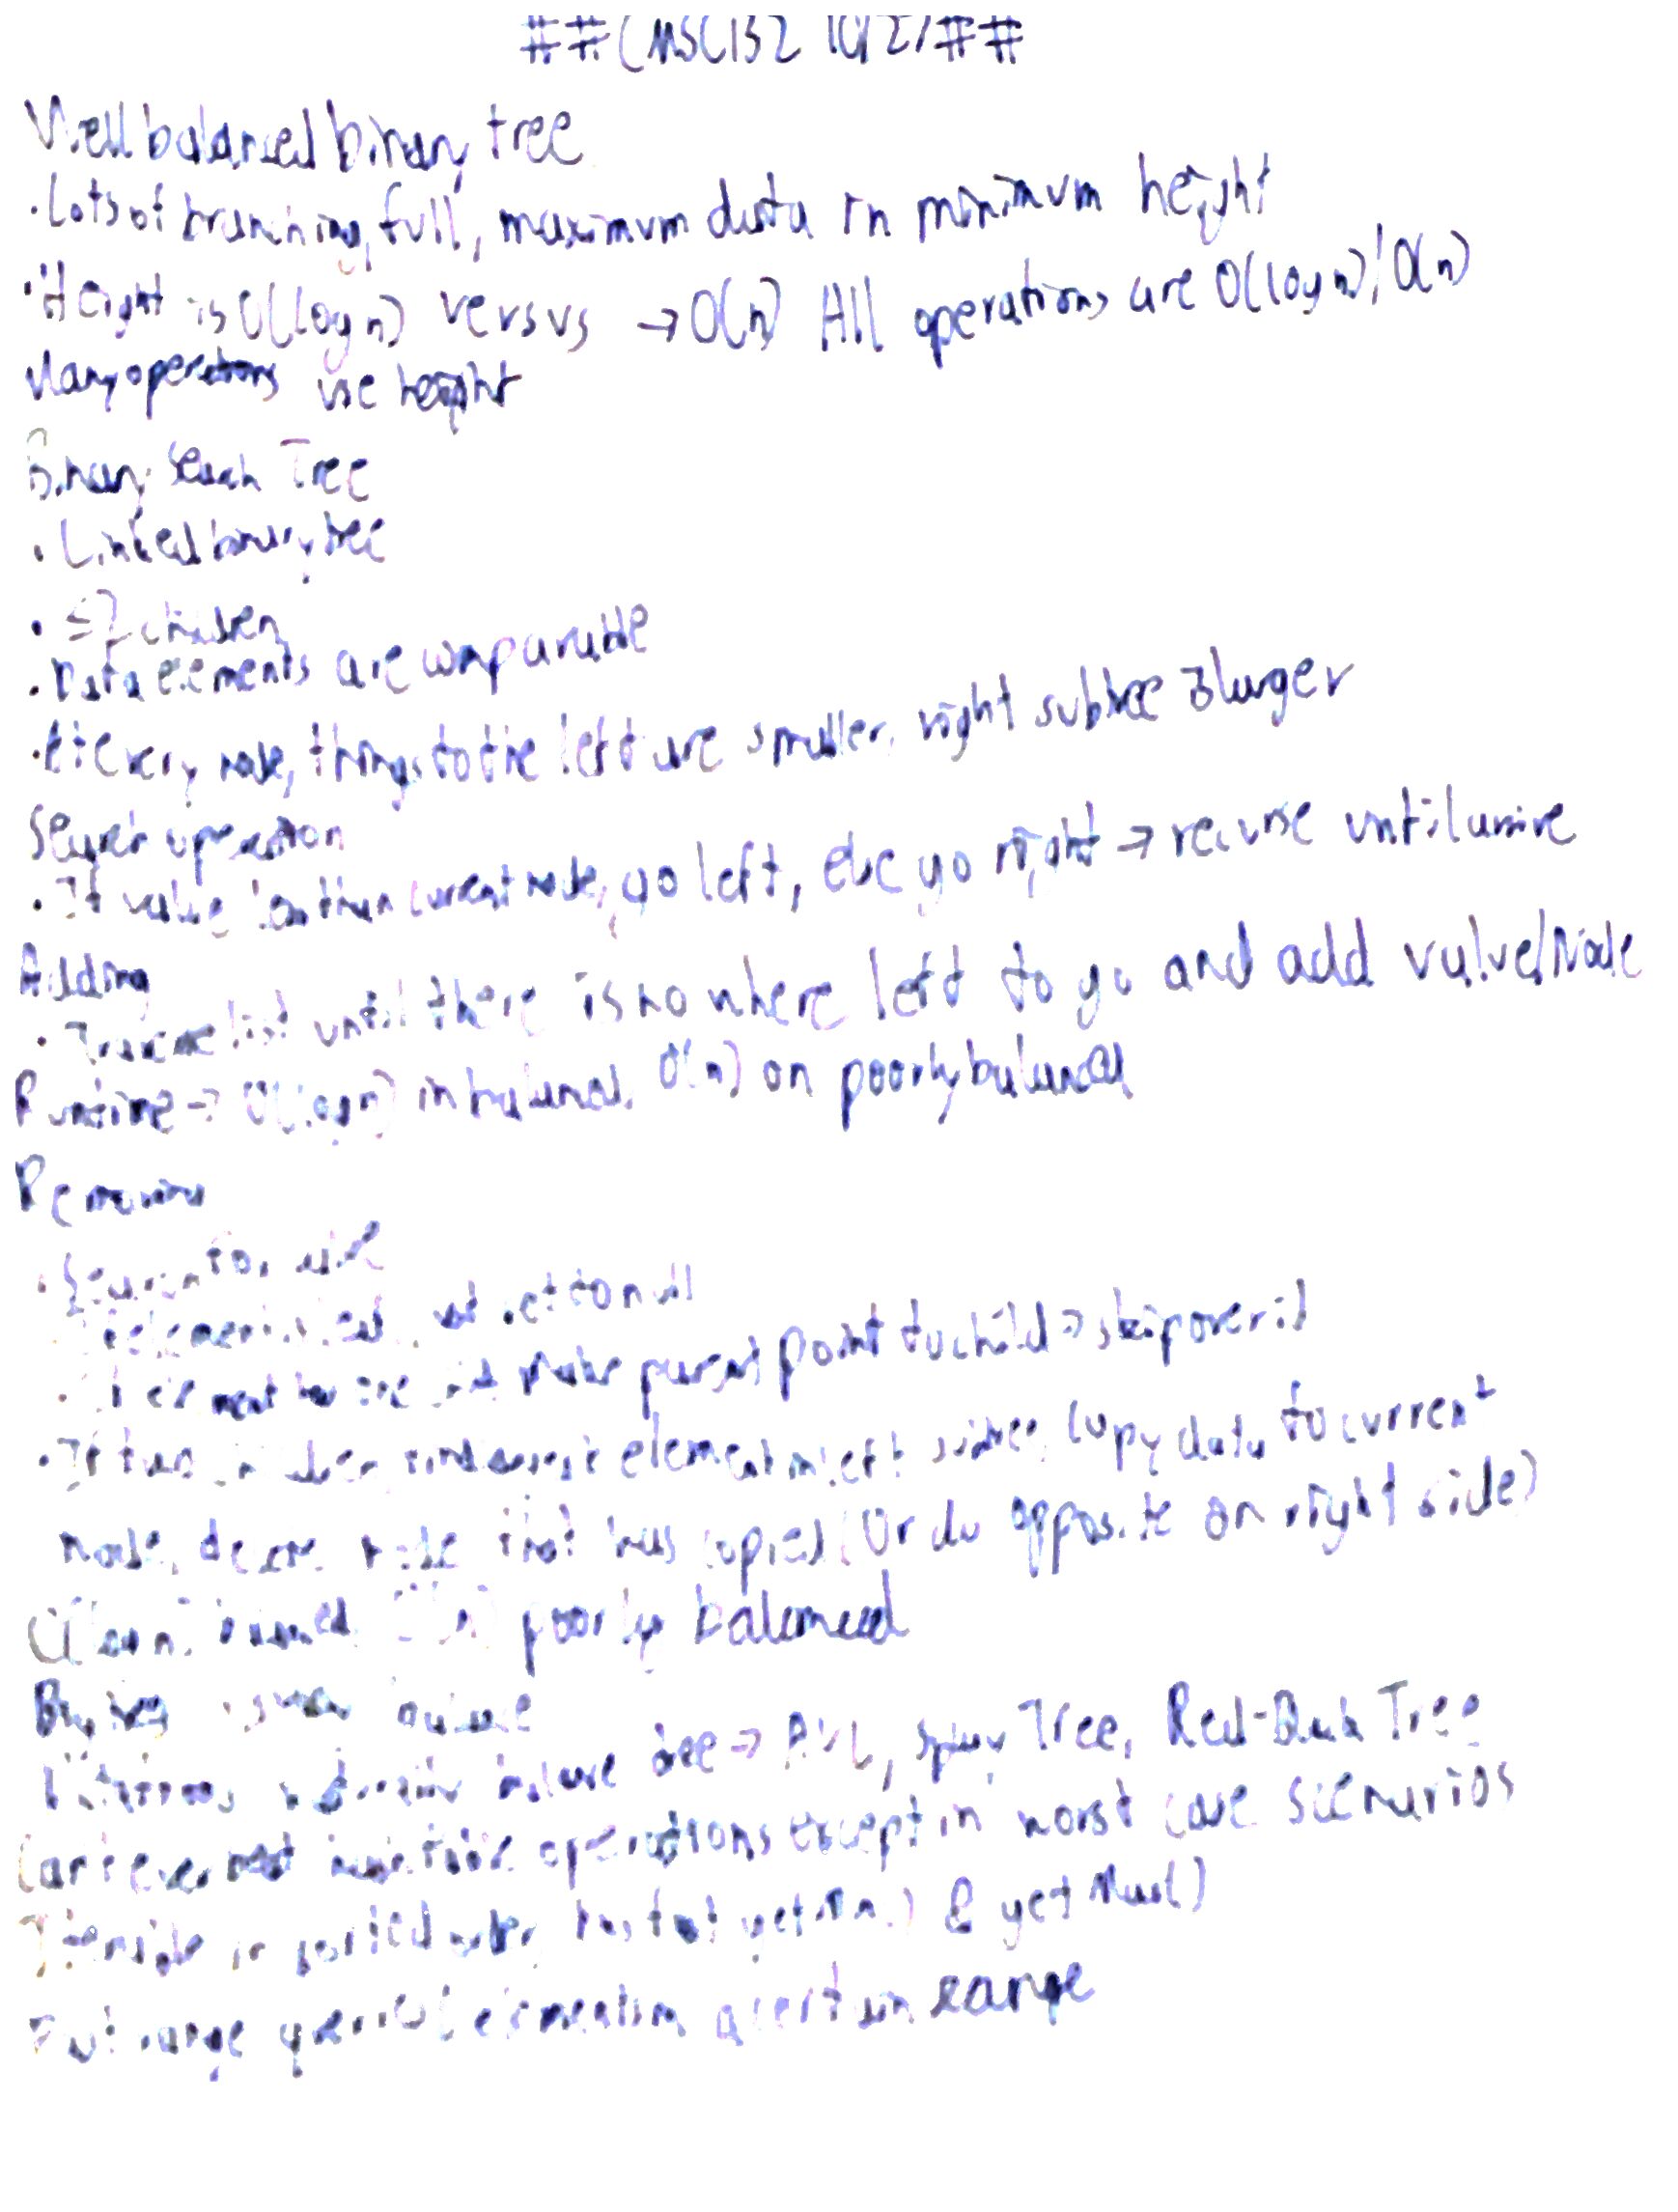 ##CMSC132 10/27##
Well balanced binary tree
• Lots of branching, full, maximum data in minimum height
• Height is O(log n) versus → O(n) All operations are O(log n)/O(n)
Many operations use height
Binary Search Tree
• Linked binary tree
• ≤2 children
• Data elements are comparable
• At every node, things to the left are smaller, right subtree is larger
Search operation
• If value less than current node, go left, else go right → recurse until arrive
Adding
• Traverse list until there is nowhere left to go and add value/Node
Runtime → O(log n) in balanced, O(n) on poorly balanced
Removing
• Search for
• If element is leaf, set to null
• If element has one make parent point to child → skip over it
• If two children find largest element in left subtree, copy data to current
node, delete node that was copied (Or do opposite on right side)
O(log n) balanced, O(n) poorly balanced
balance
balance tree → AVL, Splay Tree, Red-Black Tree
operations except in worst case scenarios
Iterable in sorted order, has fast getMin() & getMax()
Fast range queries elements in a certain range